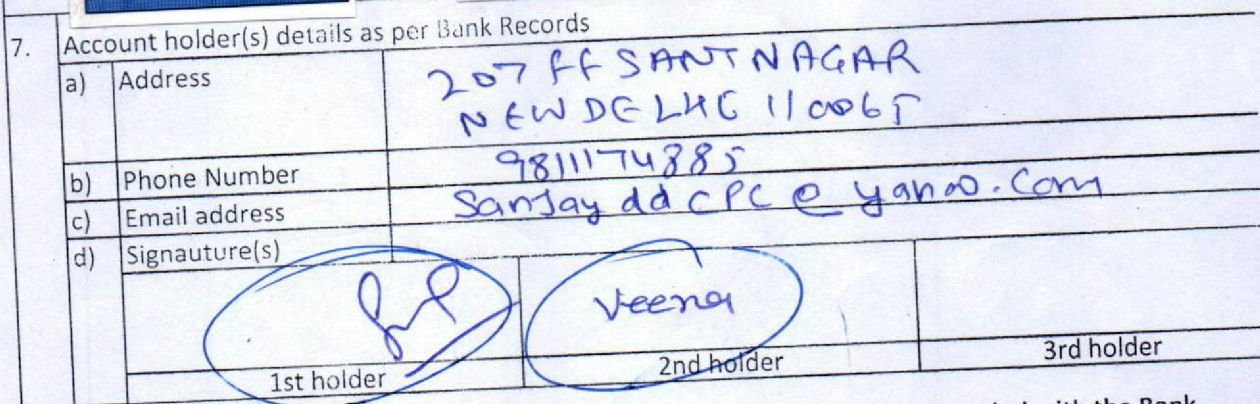 7. Account holder(s) details as per Bank Records
a) Address 207 FF SANT NAGAR
NEW DELHI 110065
b) Phone Number 9811174885
c) Email address Sanjayddcpc@yahoo.com
d) Signauture(s)
Veena
1st holder 2nd holder 3rd holder
with the Bank